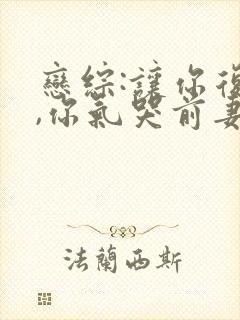 戀綜:讓你復
,你氣哭前妻
法蘭西斯